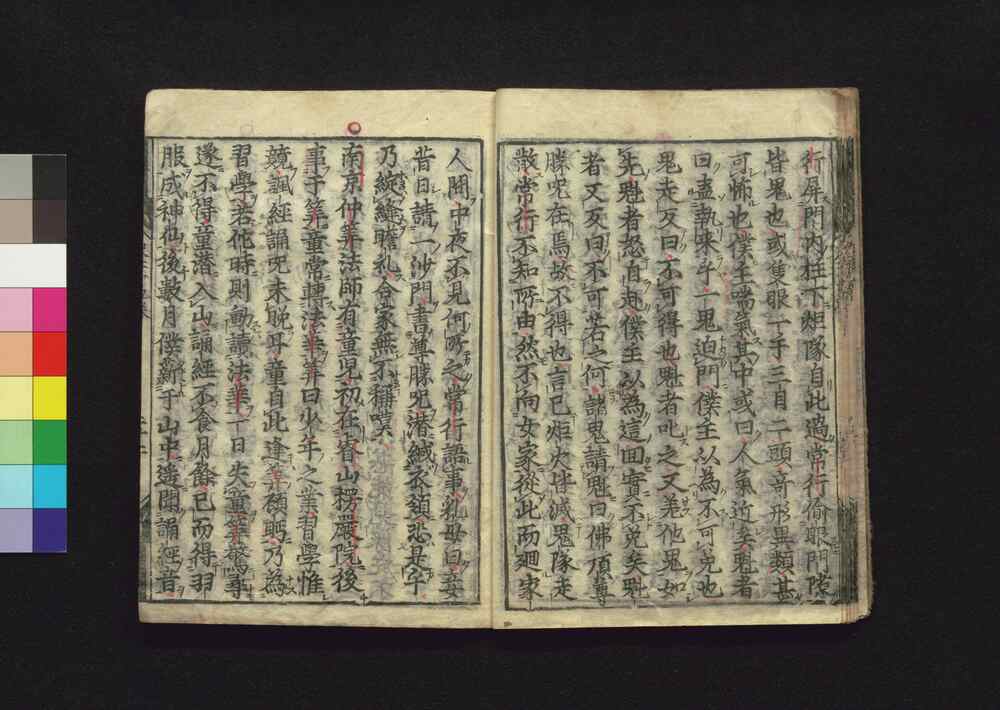 行屏門内在下炬隊自此過常行偷眼門隙
皆鬼也或隻眼一手三目二頭奇形異類甚
可怖也僕主喘氣其中或曰人氣近矣魁者
曰盍執來乎一鬼迫門僕主以為不可免也
鬼走反曰不可得也魁者叱之又差他鬼如
先魁者怒自赴僕主以為這回實不免矣魁
者又反曰不可若之何諸鬼請魁曰佛頂尊
勝呪在焉故不得也言已炬火皆滅鬼隊走
散常行不知所由然不向女家從此而廻家
人閙中夜不見何所之常行語事乳母曰妾
昔日請一沙門書尊勝呪潛緘衣頸恐是乎
乃綻縫瞻礼合家無不稱嘆
南京仲筭法師有童兒初在睿山楞嚴院後
事于筭童常轉法華筭曰少年之業習學惟
競諷經誦呪未晚耳童自此逢筭顧眄乃為
習學若佗時則動讀法華一日失童筭驚尋
遂不得童潛入山誦經不食月餘已而得羽
服成神仙後數月僕薪于山中遥聞誦經音